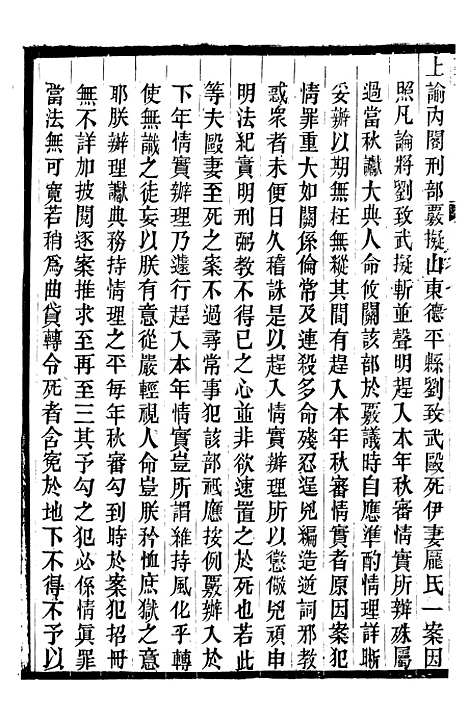 上諭內閣刑部覈擬山東德平縣劉致武毆死伊妻龎氏一案因
照凡論將劉致武擬斬並聲明趕入本年秋審情實所辦殊屬
過當秋讞大典人命攸關該部於覈議時自應準酌情理詳晰
妥辦以期無枉無縱其間有趕入本年秋審情實者原因案犯
情罪重大如關係倫常及連殺多命殘忍逞兇編造逆詞邪教
惑衆者未便日久稽誅是以趕入情實辦理所以懲儆兇頑申
明法紀實明刑弼教不得已之心並非欲速置之於死也若此
等夫毆妻至死之案不過尋常事犯該部祗應按例覈辦入於
下年情實辦理乃遽行趕入本年情實豈所謂維持風化乎轉
使無識之徒妄以朕有意從嚴輕視人命豈朕矜恤庶獄之意
耶朕辦理讞典務持情理之平每年秋審勾到時於案犯招冊
無不詳加披閱逐案推求至再至三其予勾之犯必係情眞罪
當法無可寬若稍爲曲貸轉令死者含寃於地下不得不予以